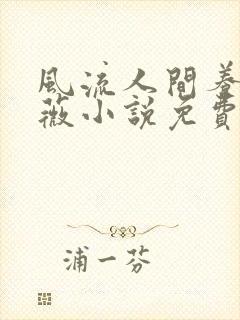 風流人間養
薇小説免費
浦一芬